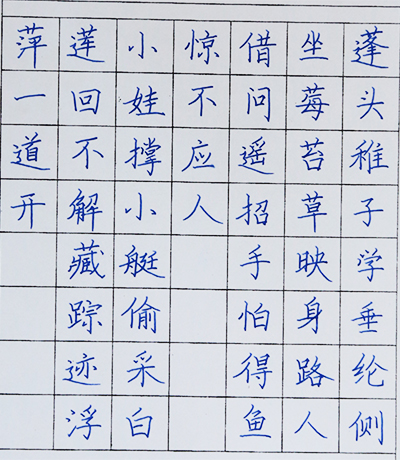 蓬头稚子学垂纶侧
坐莓苔草映身路人
借问遥招手怕得鱼
惊不应人
小娃撑小艇偷采白
莲回不解藏踪迹浮
萍一道开